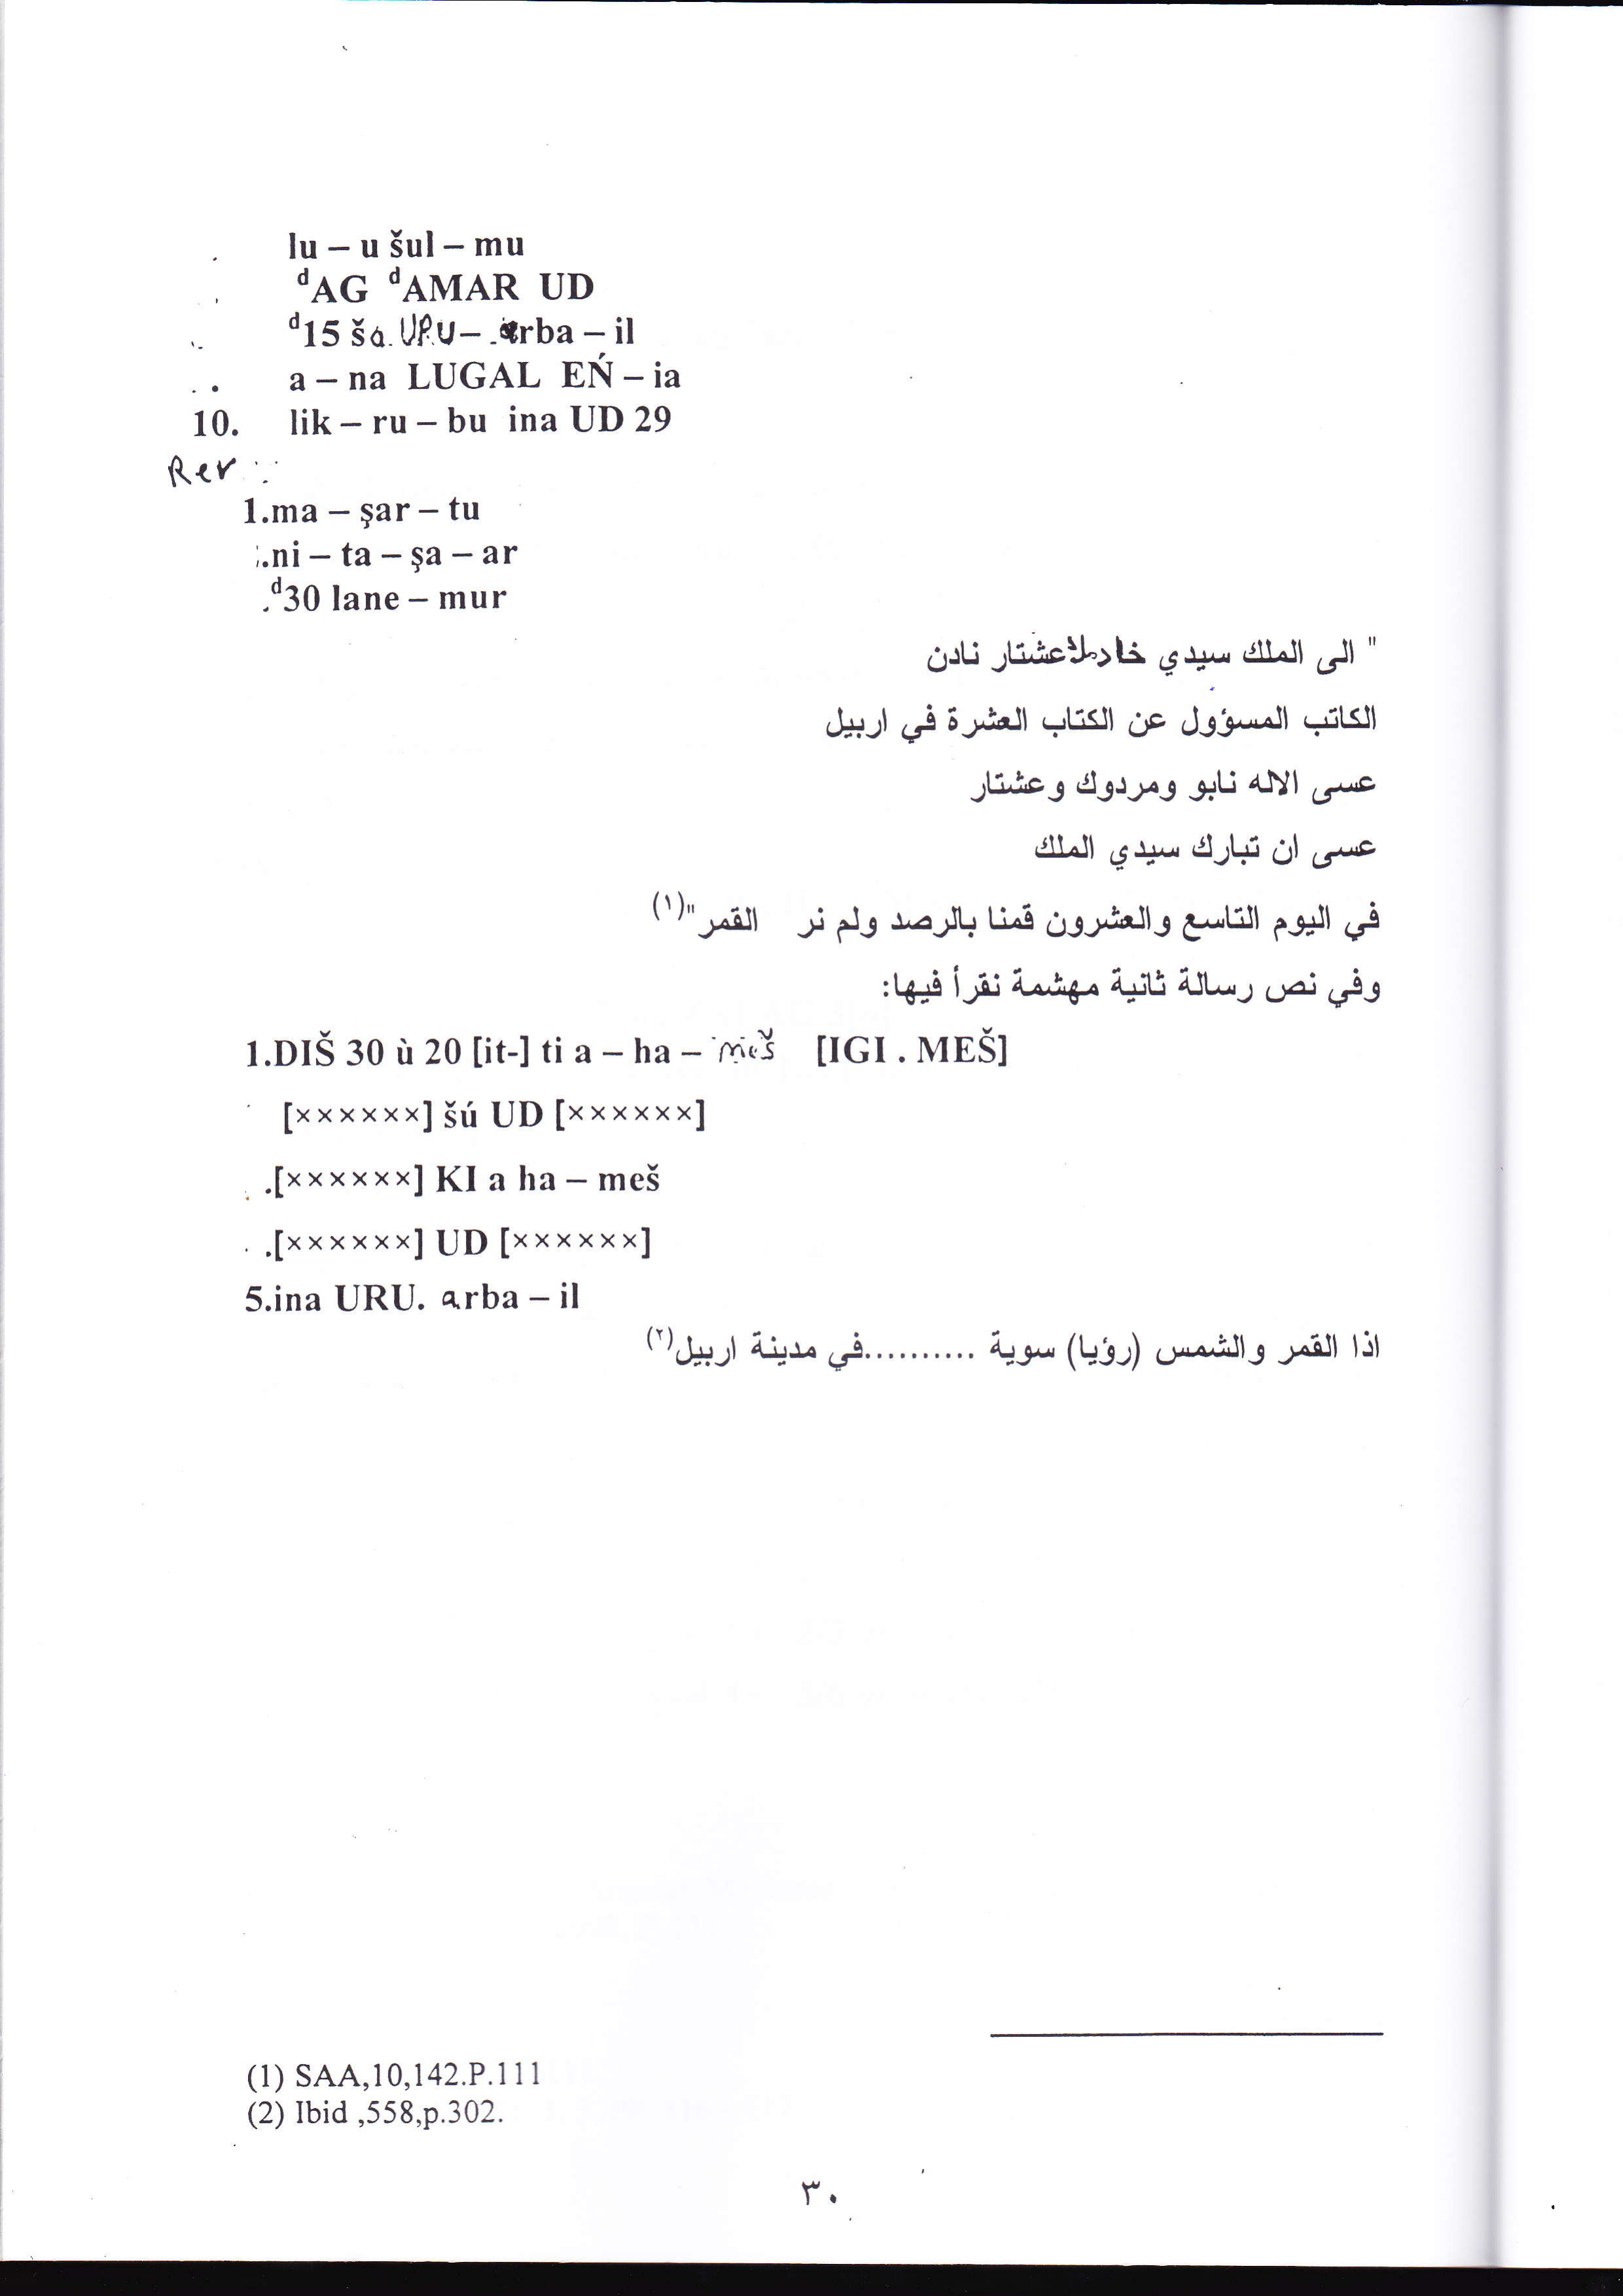 lu – u šul – mu
dAG dAMAR UD
d15 ša URU – arba – il
a – na LUGAL EŃ – ia
10. lik – ru – bu ina UD 29
Rev :
1.ma – şar – tu
.ni – ta – şa – ar
.d30 lane – mur
" الى الملك سيدي خادمك عشتار نادن
الكاتب المسؤول عن الكتاب العشرة في اربيل
عسى الاله نابو ومردوك وعشتار
عسى ان تبارك سيدي الملك
في اليوم التاسع والعشرون قمنا بالرصد ولم نر القمر"(١)
وفي نص رسالة ثانية مهشمة نقرأ فيها:
1.DIŠ 30 ù 20 [it-] ti a – ha – meš [IGI . MEŠ]
[××××××] šú UD [××××××]
.[××××××] KI a ha – meš
.[××××××] UD [××××××]
5.ina URU. arba – il
اذا القمر والشمس (رؤيا) سوية ..........في مدينة اربيل(٢)
(1) SAA,10,142.P.111
(2) Ibid ,558,p.302.
٣٠